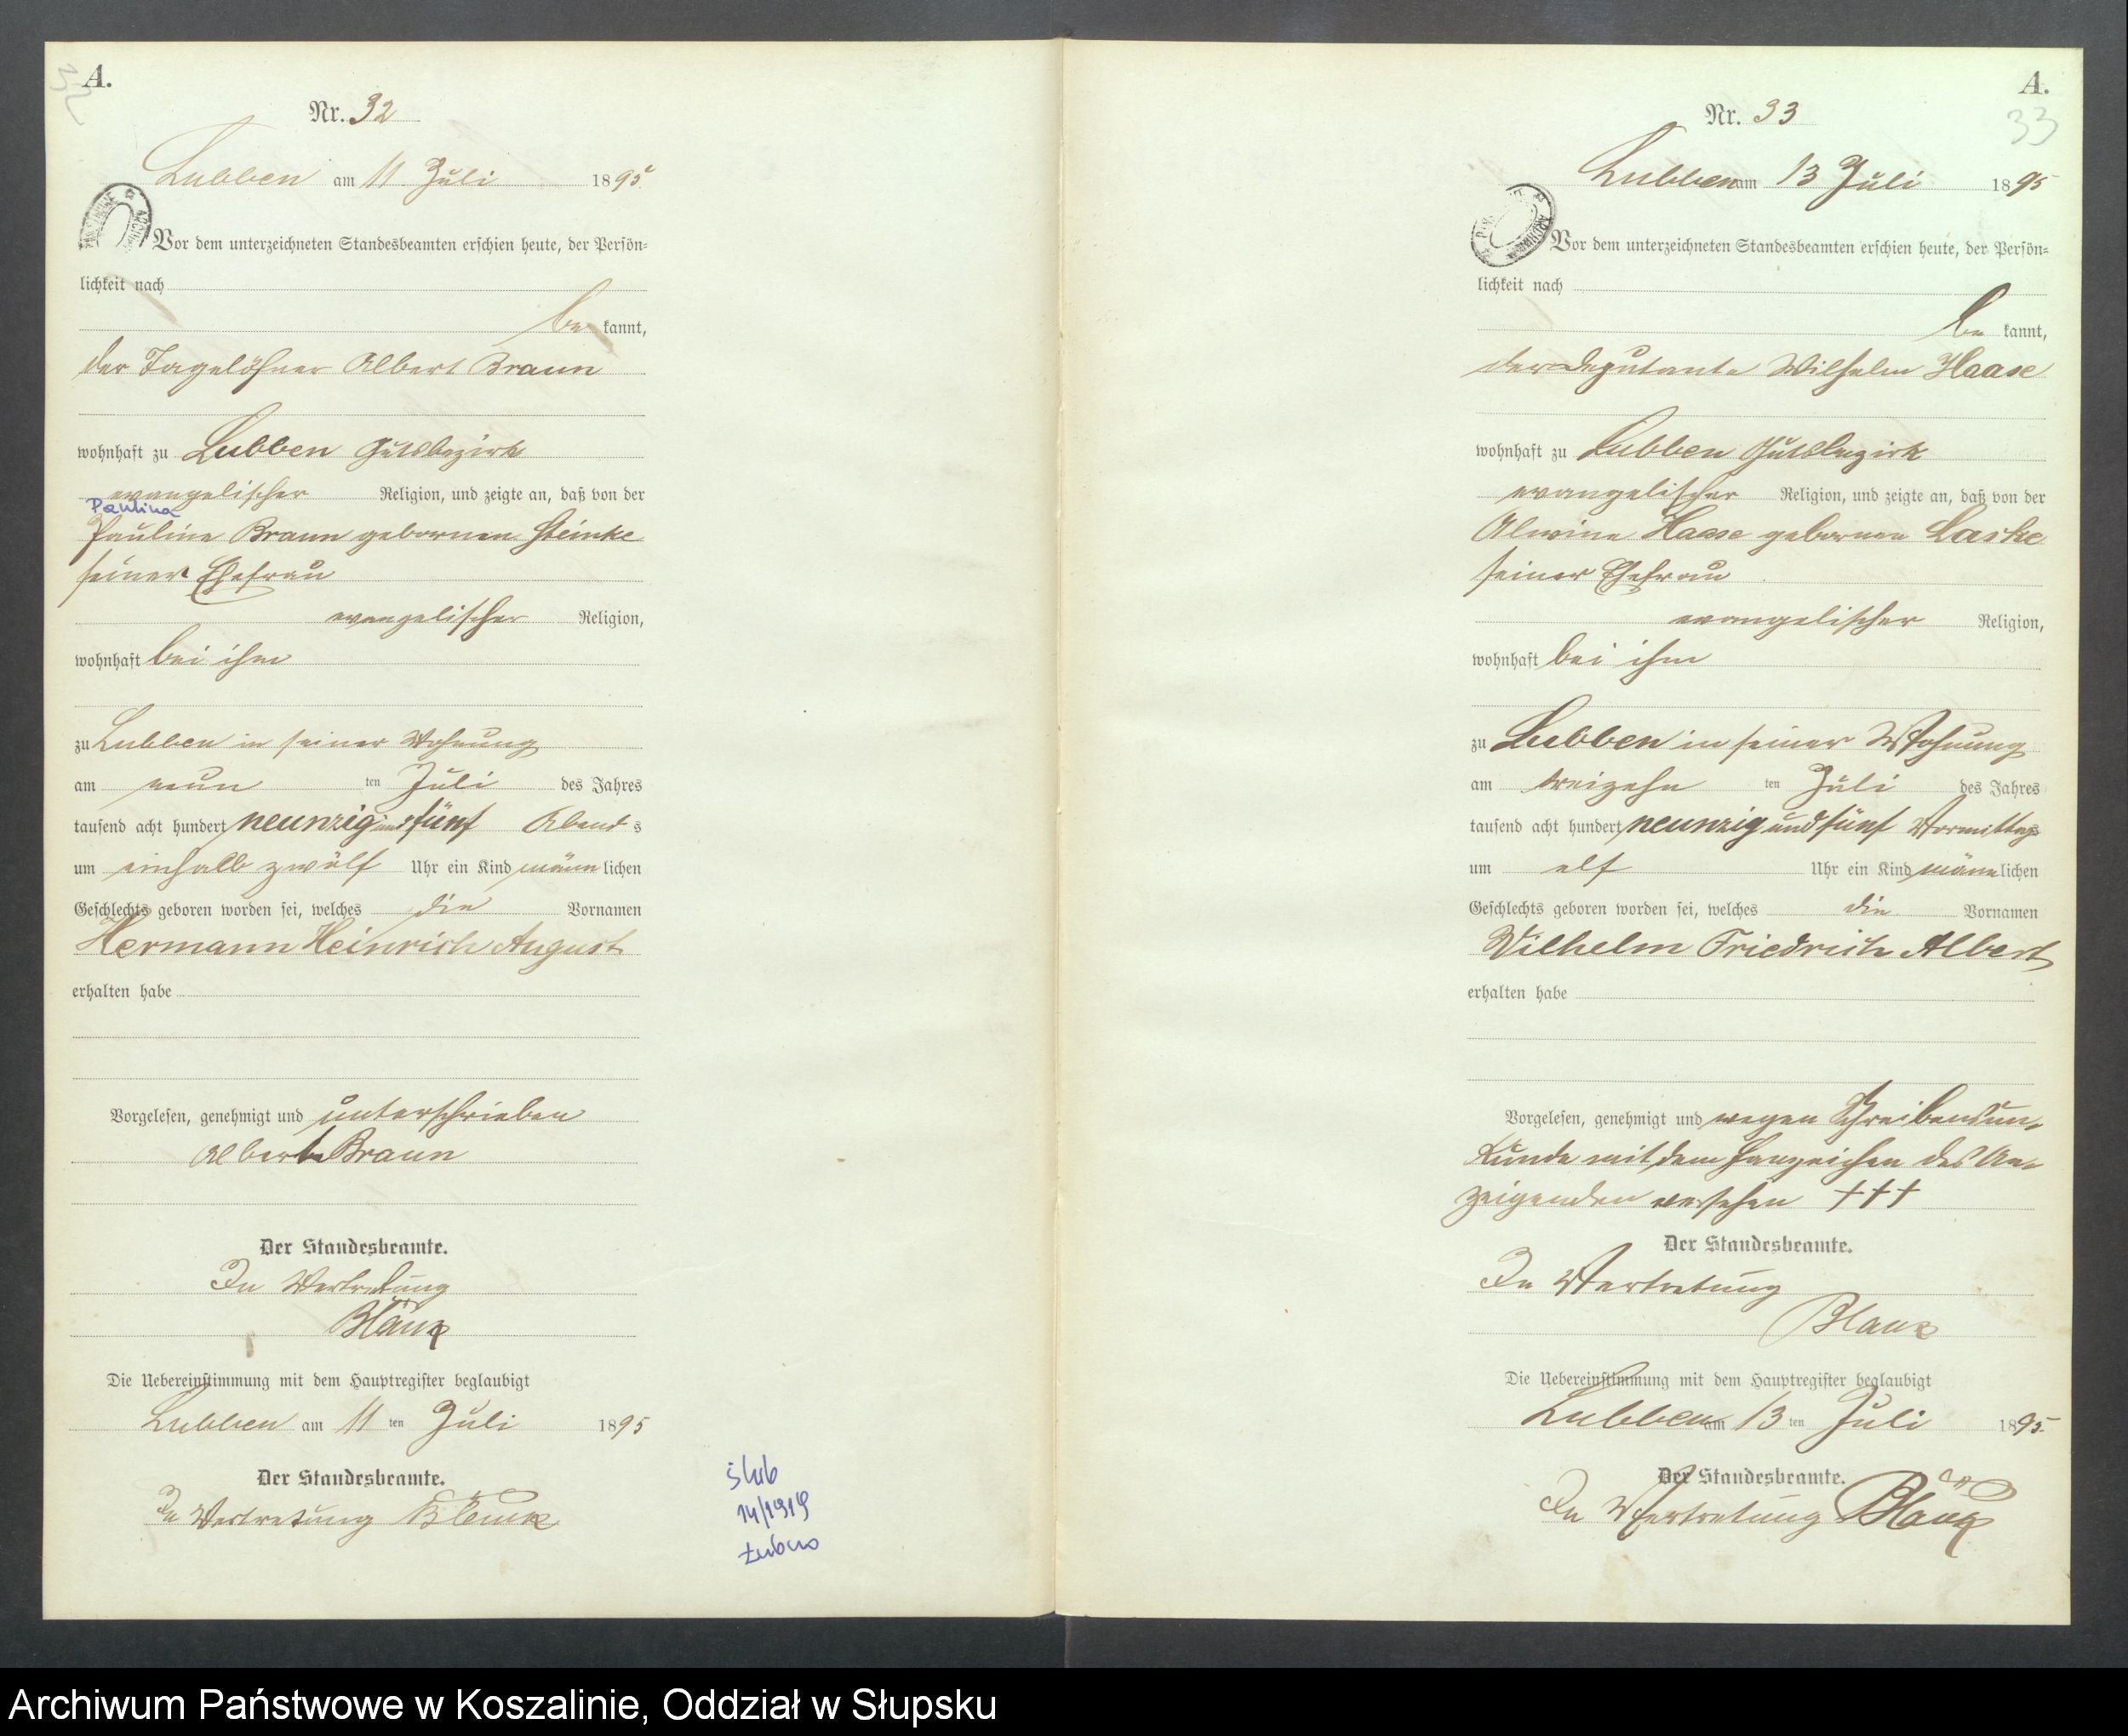 32
A.
Nr. 32
Lubben am 11 Juli 1895.
Vor dem unterzeichneten Standesbeamten erschien heute, der Persön=
lichkeit nach
be kannt,
der Tagelöhner Albert Braun
wohnhaft zu Lubben Gutsbezirk
evangelischer Religion, und zeigte an, daß von der
Paulina
Pauline Braun gebornen Steinke
seiner Ehefrau
evangelischer Religion,
wohnhaft bei ihm
zu Lubben in seiner Wohnung
am neun ten Juli des Jahres
tausend acht hundert neunzig und fünf Abend s
um einhalb zwölf Uhr ein Kind männlichen
Geschlechts geboren worden sei, welches die Vornamen
Hermann Heinrich August
erhalten habe
Vorgelesen, genehmigt und unterschrieben
Albert Braun
Der Standesbeamte.
In Vertretung
Die Uebereinstimmung mit dem Hauptregister beglaubigt
Lubben am 11 ten Juli 1895
Der Standesbeamte.
In Vertretung
ślub
14/1919
Łubno
A.
33
Nr. 33
Lubben am 13 Juli 1895
Vor dem unterzeichneten Standesbeamten erschien heute, der Persön=
lichkeit nach
be kannt,
der Deputante Wilhelm Haase
wohnhaft zu Lubben Gutsbezirk
evangelischer Religion, und zeigte an, daß von der
Alwine Haase gebornen Laske
seiner Ehefrau
evangelischer Religion,
wohnhaft bei ihm
zu Lubben in seiner Wohnung
am dreizehn ten Juli des Jahres
tausend acht hundert neunzig und fünf Vormittags
um elf Uhr ein Kind männlichen
Geschlechts geboren worden sei, welches die Vornamen
Wilhelm Friedrich Albert
erhalten habe
Vorgelesen, genehmigt und wegen Schreibensun=
kunde mit dem Hanzeichen des An=
zeigenden versehen †††
Der Standesbeamte.
In Vertretung
Die Uebereinstimmung mit dem Hauptregister beglaubigt
Lubben am 13 ten Juli 1895.
Der Standesbeamte.
In Vertretung
Archiwum Państwowe w Koszalinie, Oddział w Słupsku